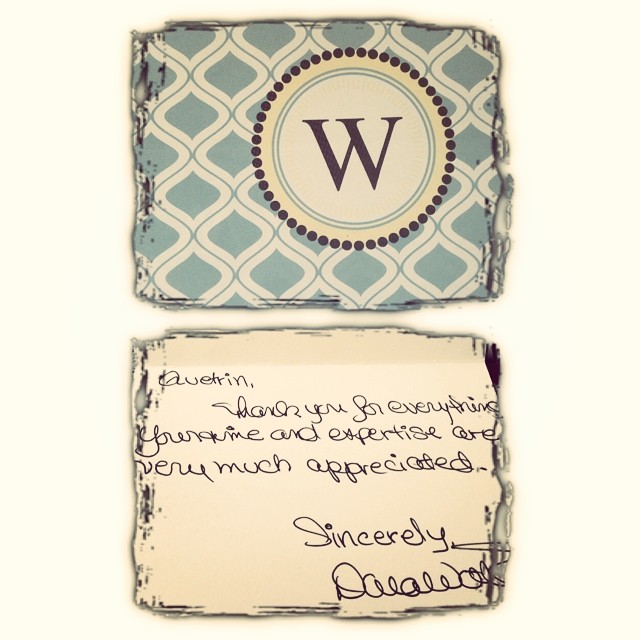 W
Quetrin,
Thank you for everything
Your time and expertise are
very much appreciated.
Sincerely